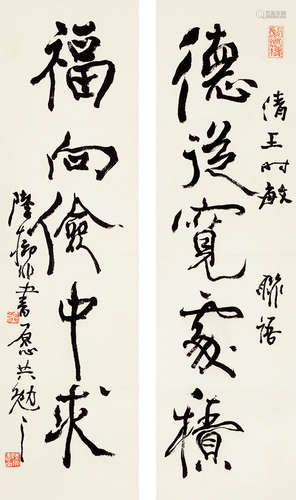 清王时敏 聯語
德從寬處積
福向儉中求
陸抑非書愿共勉之